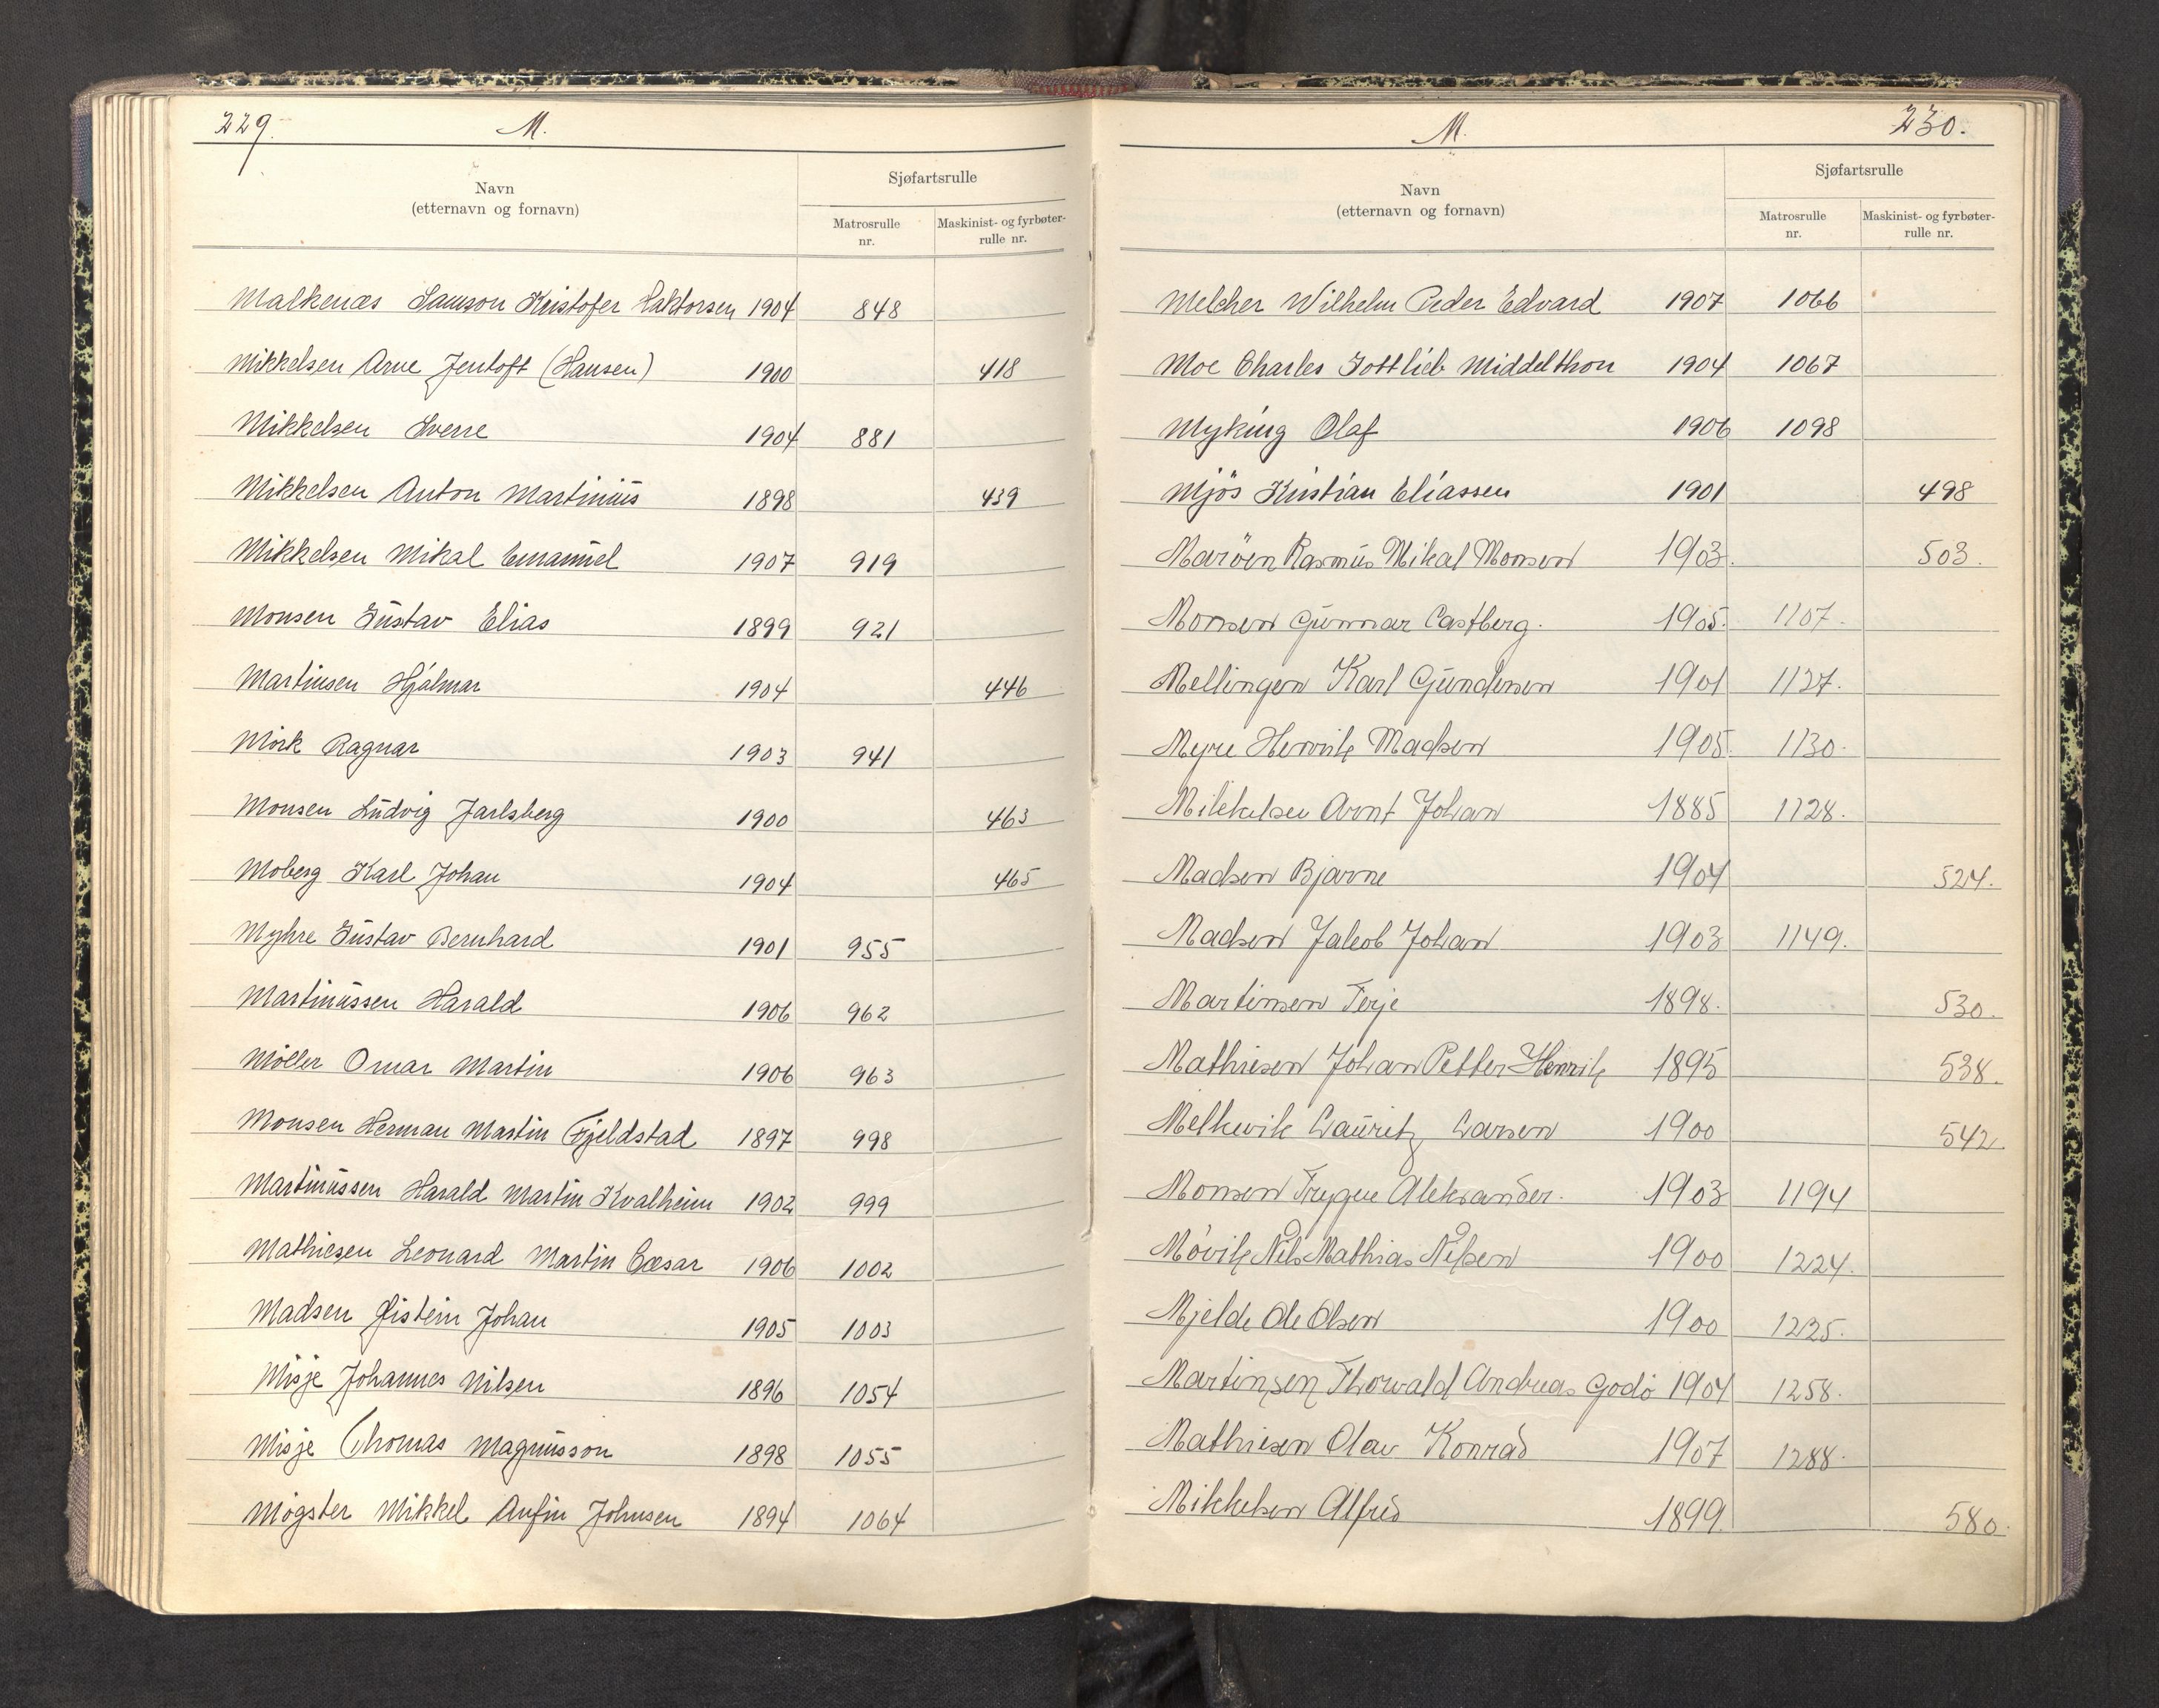 229. M.
Navn
(etternavn og fornavn)
Sjøfartsrulle
Matrosrulle nr.
Maskinist- og fyrbøter-rulle nr.
Malkenæs Samson Kristofer Haktorsen 1904 848
Mikkelsen Arne Jentoft (Hansen) 1900 418
Mikkelsen Sverre 1904 881
Mikkelsen Anton Martinius 1898 439
Mikkelsen Mikal Emanuel 1907 919
Monsen Gustav Elias 1899 921
Martinsen Hjalmar 1904 446
Mörk Ragnar 1903 941
Monsen Ludvig Jarlsberg 1900 463
Moberg Karl Johan 1904 465
Myhre Gustav Bernhard 1901 955
Martinussen Harald 1906 962
Möller Omar Martin 1906 963
Monsen Herman Martin Fjeldstad 1897 998
Martinussen Harald Martin Kvalheim 1902 999
Mathiesen Leonard Martin Cæsar 1906 1002
Madsen Øistein Johan 1905 1003
Misje Johannes Nilsen 1896 1054
Misje Thomas Magnusson 1898 1055
Mögster Mikkel Anfin Johnsen 1894 1064
M. 230.
Navn
(etternavn og fornavn)
Sjøfartsrulle
Matrosrulle nr.
Maskinist- og fyrbøter-rulle nr.
Melcher Wilhelm Peder Edvard 1907 1066
Moe Charles Gottlieb Middelthon 1904 1067
Myking Olaf 1906 1098
Mjös Kristian Eliassen 1901 498
Maröen Rasmus Mikal Monsen 1903. 503.
Monsen Gunnar Castberg. 1905. 1107.
Mellingen Karl Gundersen 1901 1127.
Myre Henrik Madsen 1905. 1130.
Mikkelsen Arnt Johan 1885 1128.
Madsen Bjarne 1904 524.
Madsen Jakob Johan 1903 1149.
Martinsen Terje 1898. 530.
Mathiesen Johan Petter Henrik 1895 538.
Melkevik Lauritz Larsen 1900 542.
Monsen Trygve Aleksander. 1903 1194
Mövik Nils Mathias Nilsen 1900 1224.
Mjelde Ole Olsen 1900 1225.
Martinsen Thorvald Andreas Godö 1904 1258.
Mathiesen Olav Konrad 1907 1288.
Mikkelsen Alfred 1899. 580.